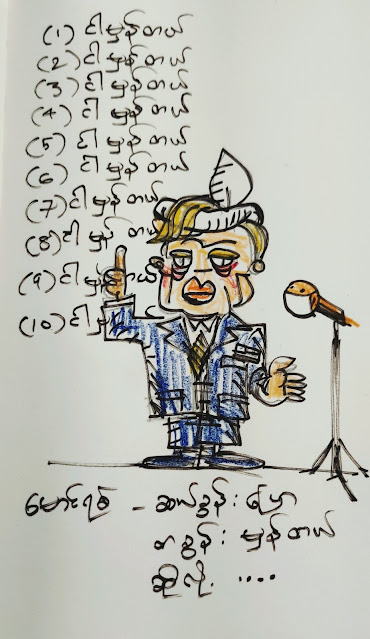 (၁) ငါ မှန် တယ်
(၂) ငါ မှန် တယ်
(၃) ငါ မှန် တယ်
(၄) ငါ မှန် တယ်
(၅) ငါ မှန် တယ်
(၆) ငါ မှန် တယ်
(၇) ငါ မှန် တယ်
(၈) ငါ မှန် တယ်
(၉) ငါ မှန် တယ်
(၁၀) ငါ
မောင်ရစ် - ဆယ်ခွန်း ပြော
တခွန်း မှန်တယ်
ဆိုလို့ ....